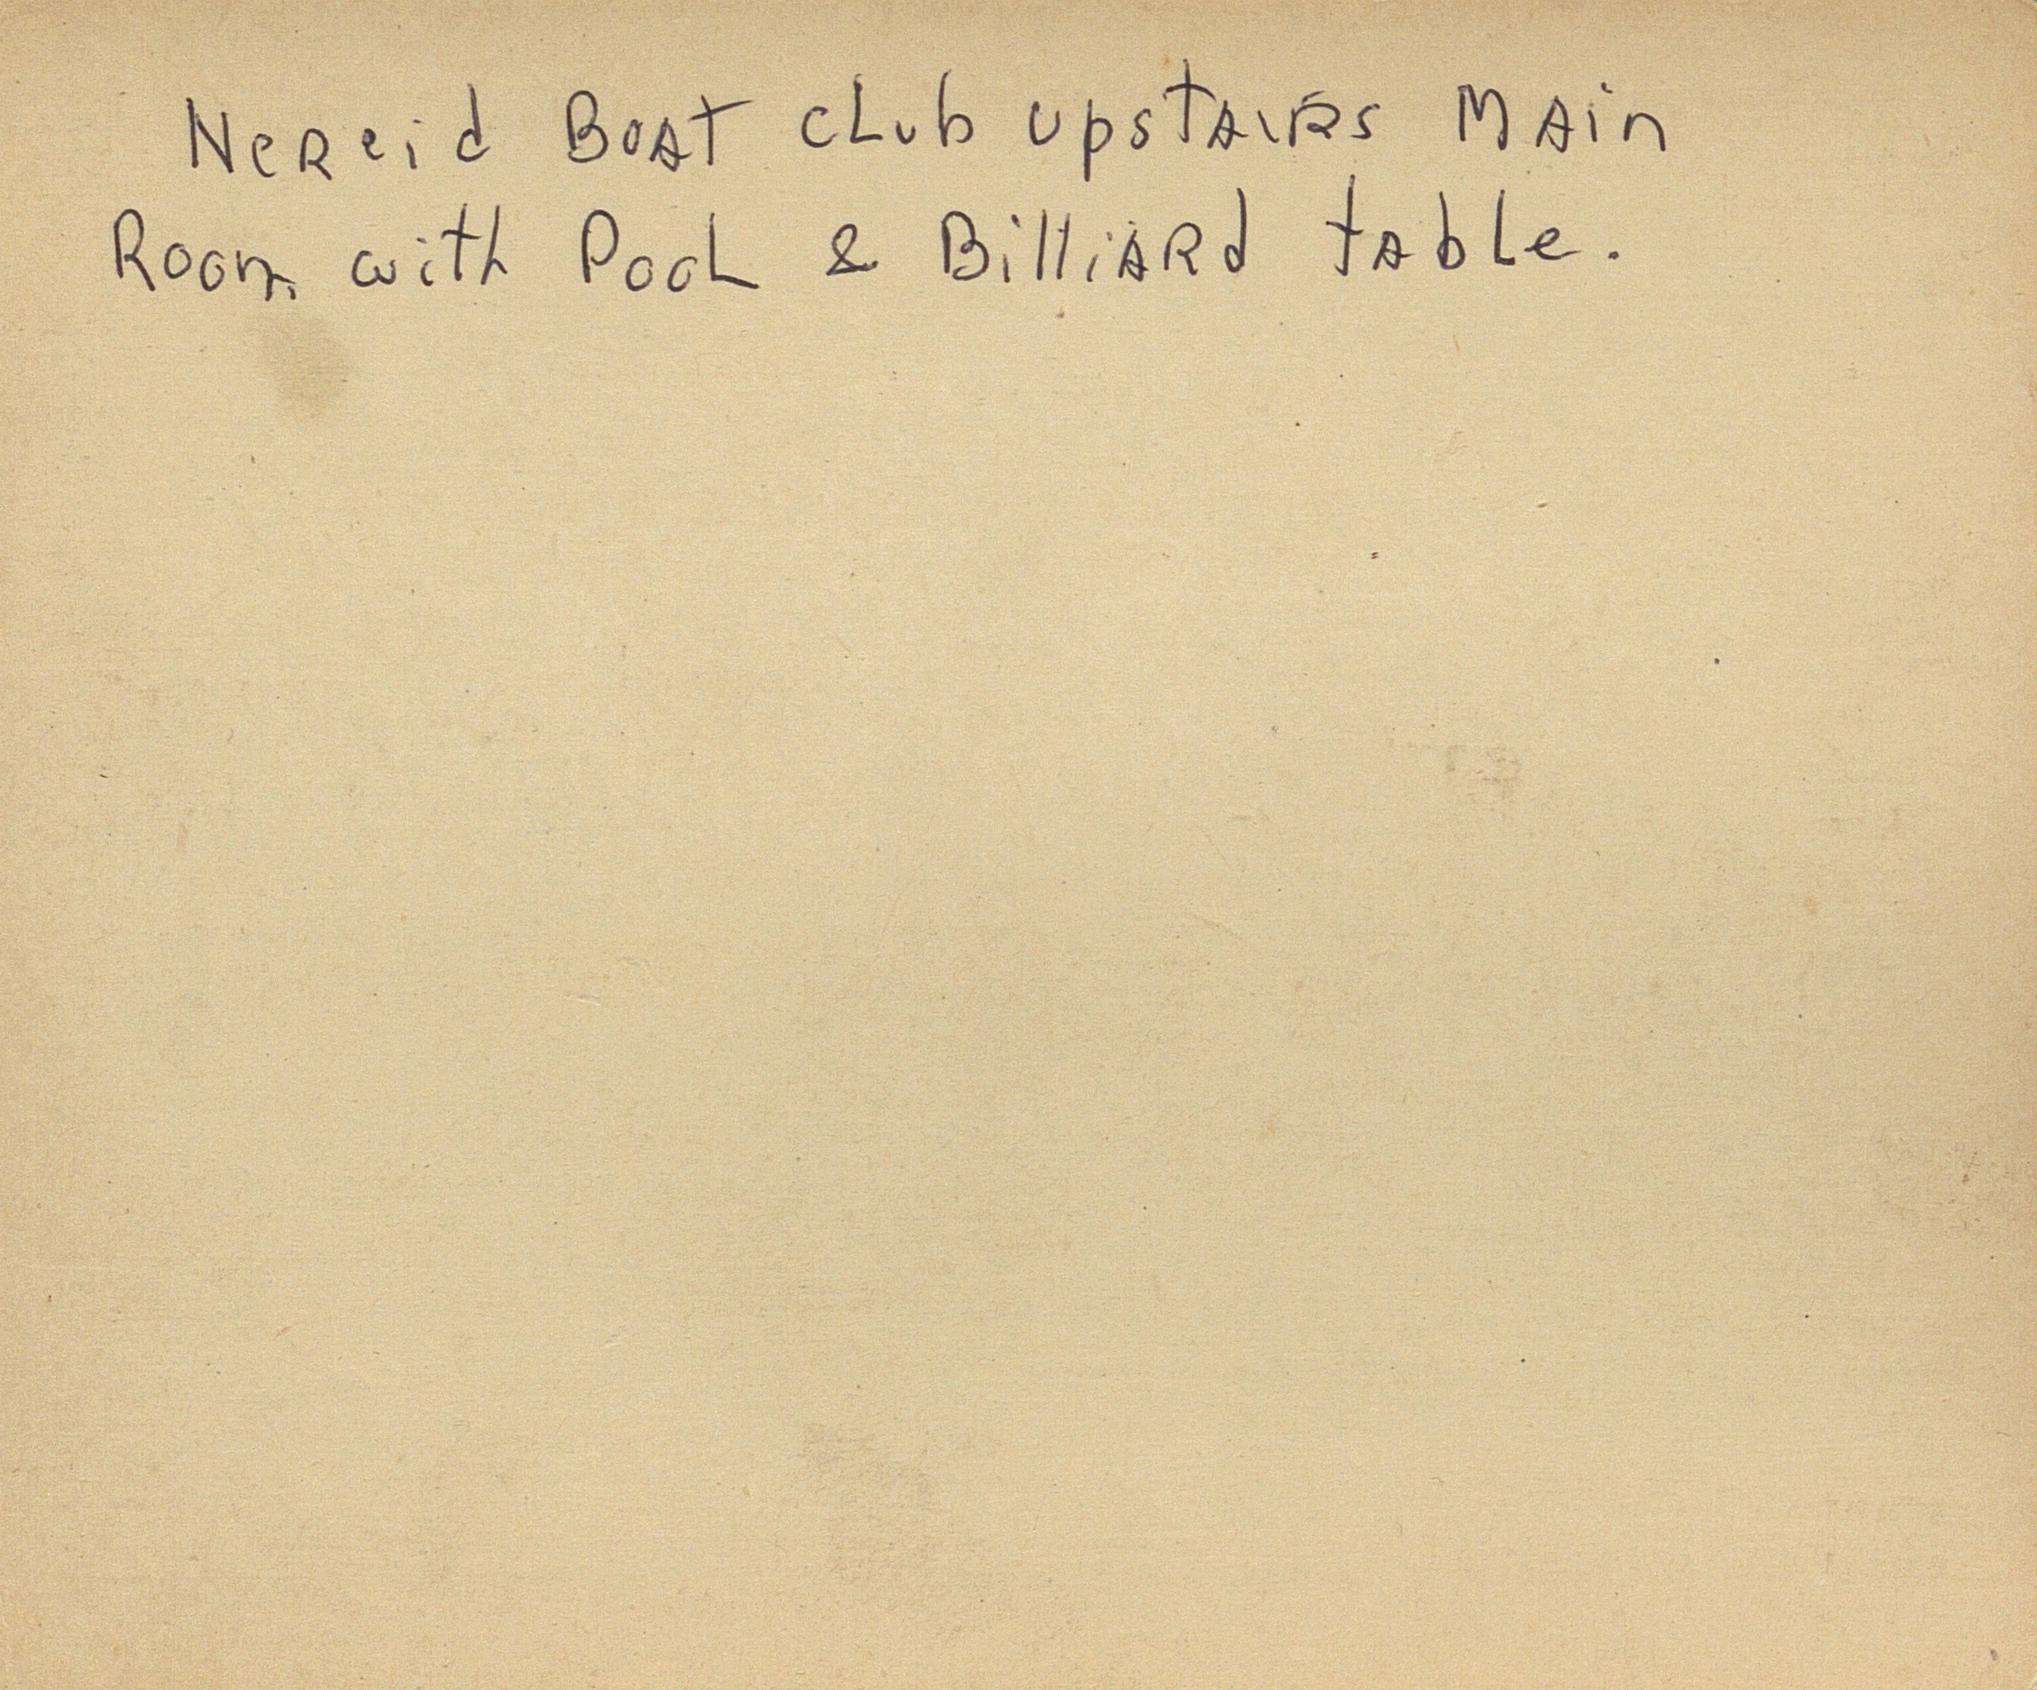 Nereid Boat Club upstairs Main
Room with Pool & Billiard table.